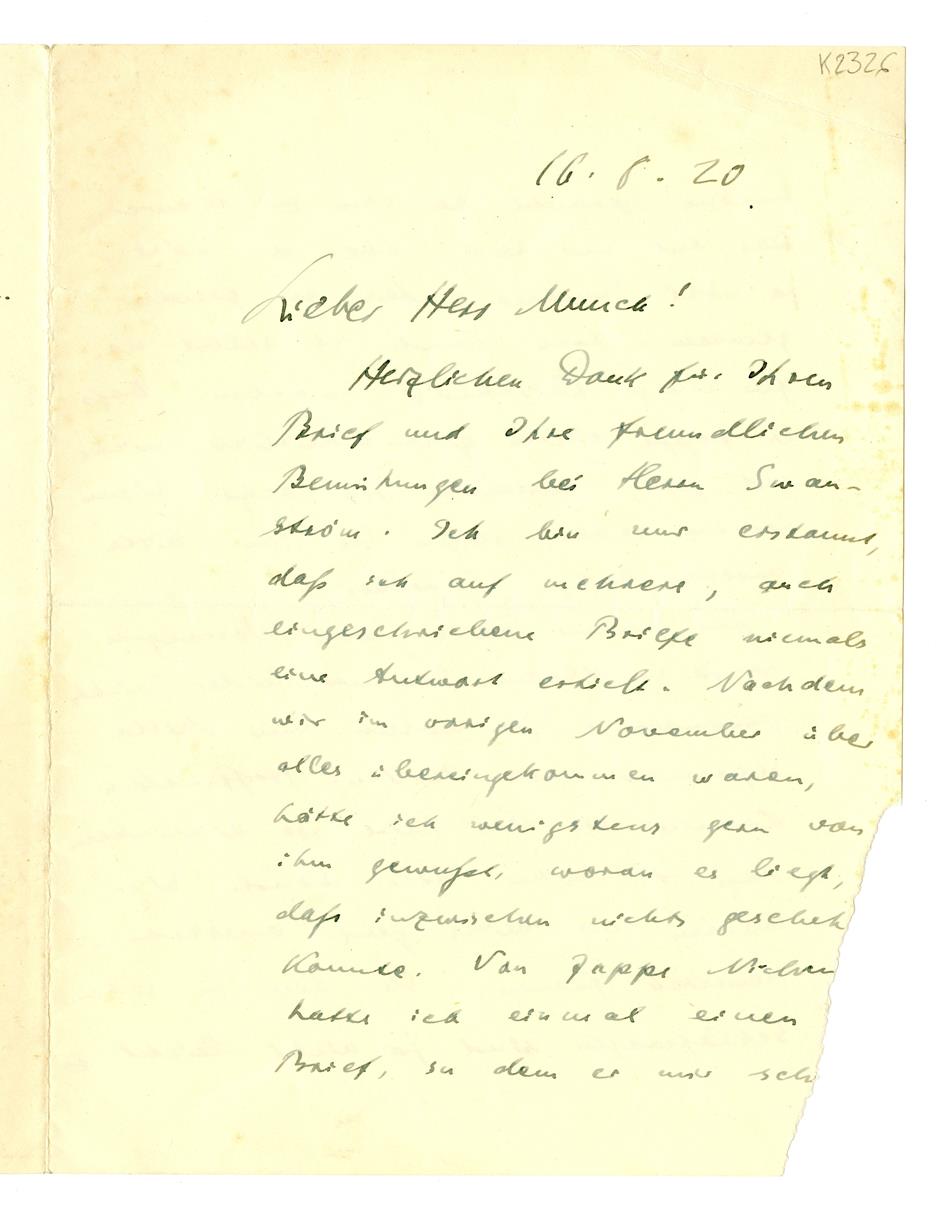 K2326
16. 8. 20
Lieber Herr Munch!
Herzlichen Dank für Ihren
Brief und Ihre freundlichen
Bemühungen bei Herrn Swan-
ström. Ich bin nur erstaunt,
daß ich auf mehrere, auch
eingeschriebene Briefe niemals
eine Antwort erhielt. Nachdem
wir im vorigen November über
alles übereingekommen waren,
hätte ich wenigstens gern von
ihm gewußt, woran es liegt,
daß inzwischen nichts gescheh
konnte. Von Jappe
hatte ich einmal einen
Brief, in dem er mir sch